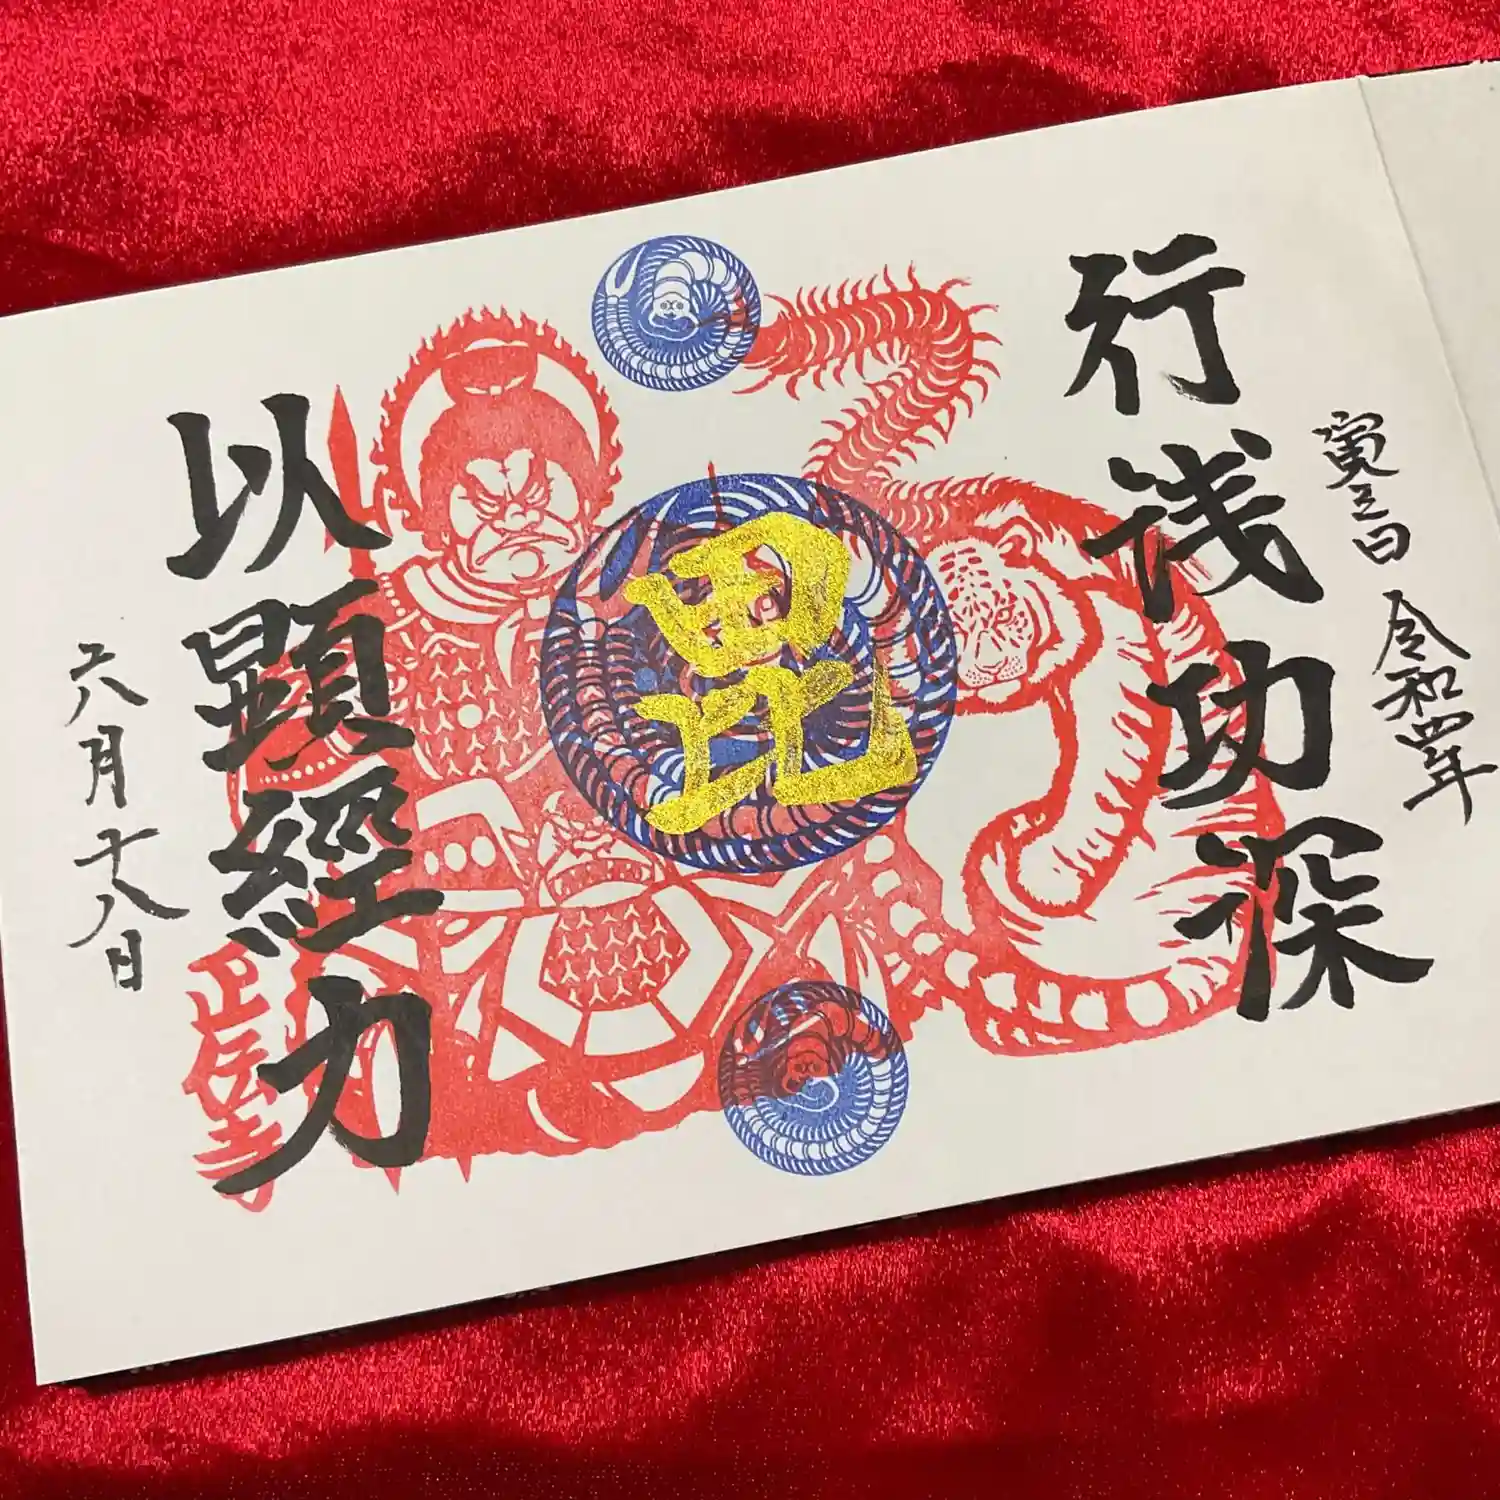 寅之日
令和四年
行浅功深
毘
以顕經力
正伝寺
六月十八日